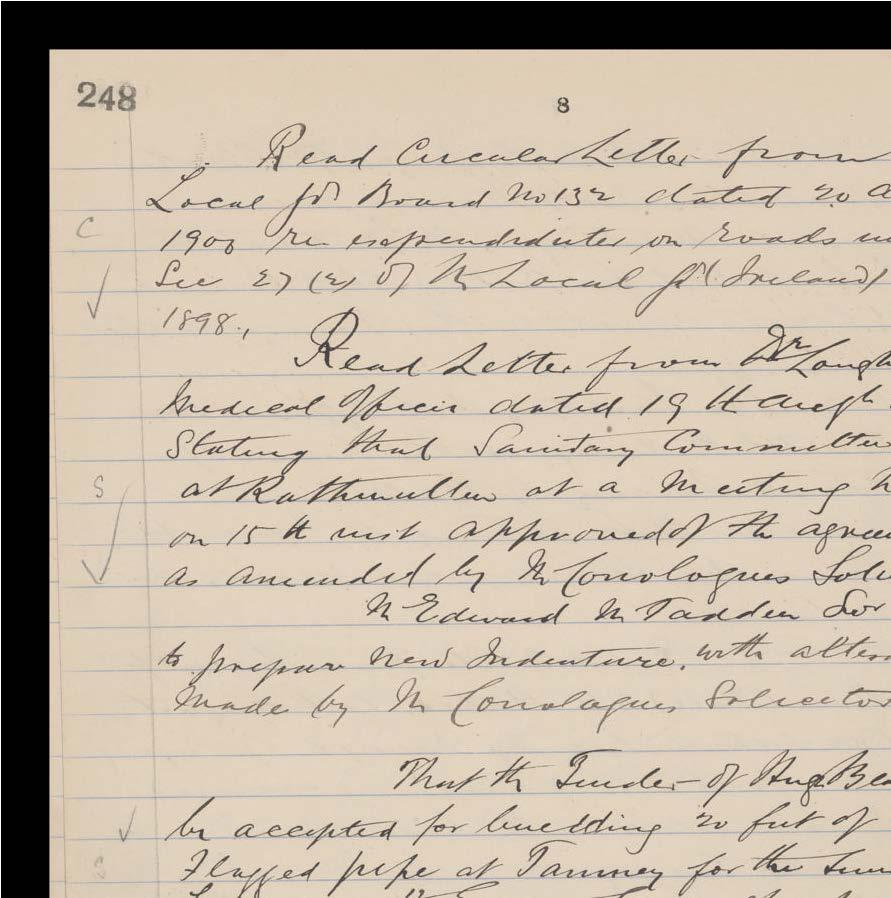 248
8
Read Circular Letter from
Local Gdt Board No 132 dated 20 A
C
1900 re expendiduter on Roads
Sec 27 (2) of the Local Gt (Ireland)
1898.,
Read Letter from Dr Laugh
Medical Officer dated 19 th Augt
Stating that Sanitary Committee
S
at Rathmullen at a Meeting h
on 15 th inst approved of the agree
as amended by Mr Conologues Soli
Mr Edward McFadden Sor
to prepare new Indenture. with alter
made by Mr Conologues Solicitor
That the Tender of Hugh
be accepted for building 20 feet of
Flagged pipe at Tamney for the Sum